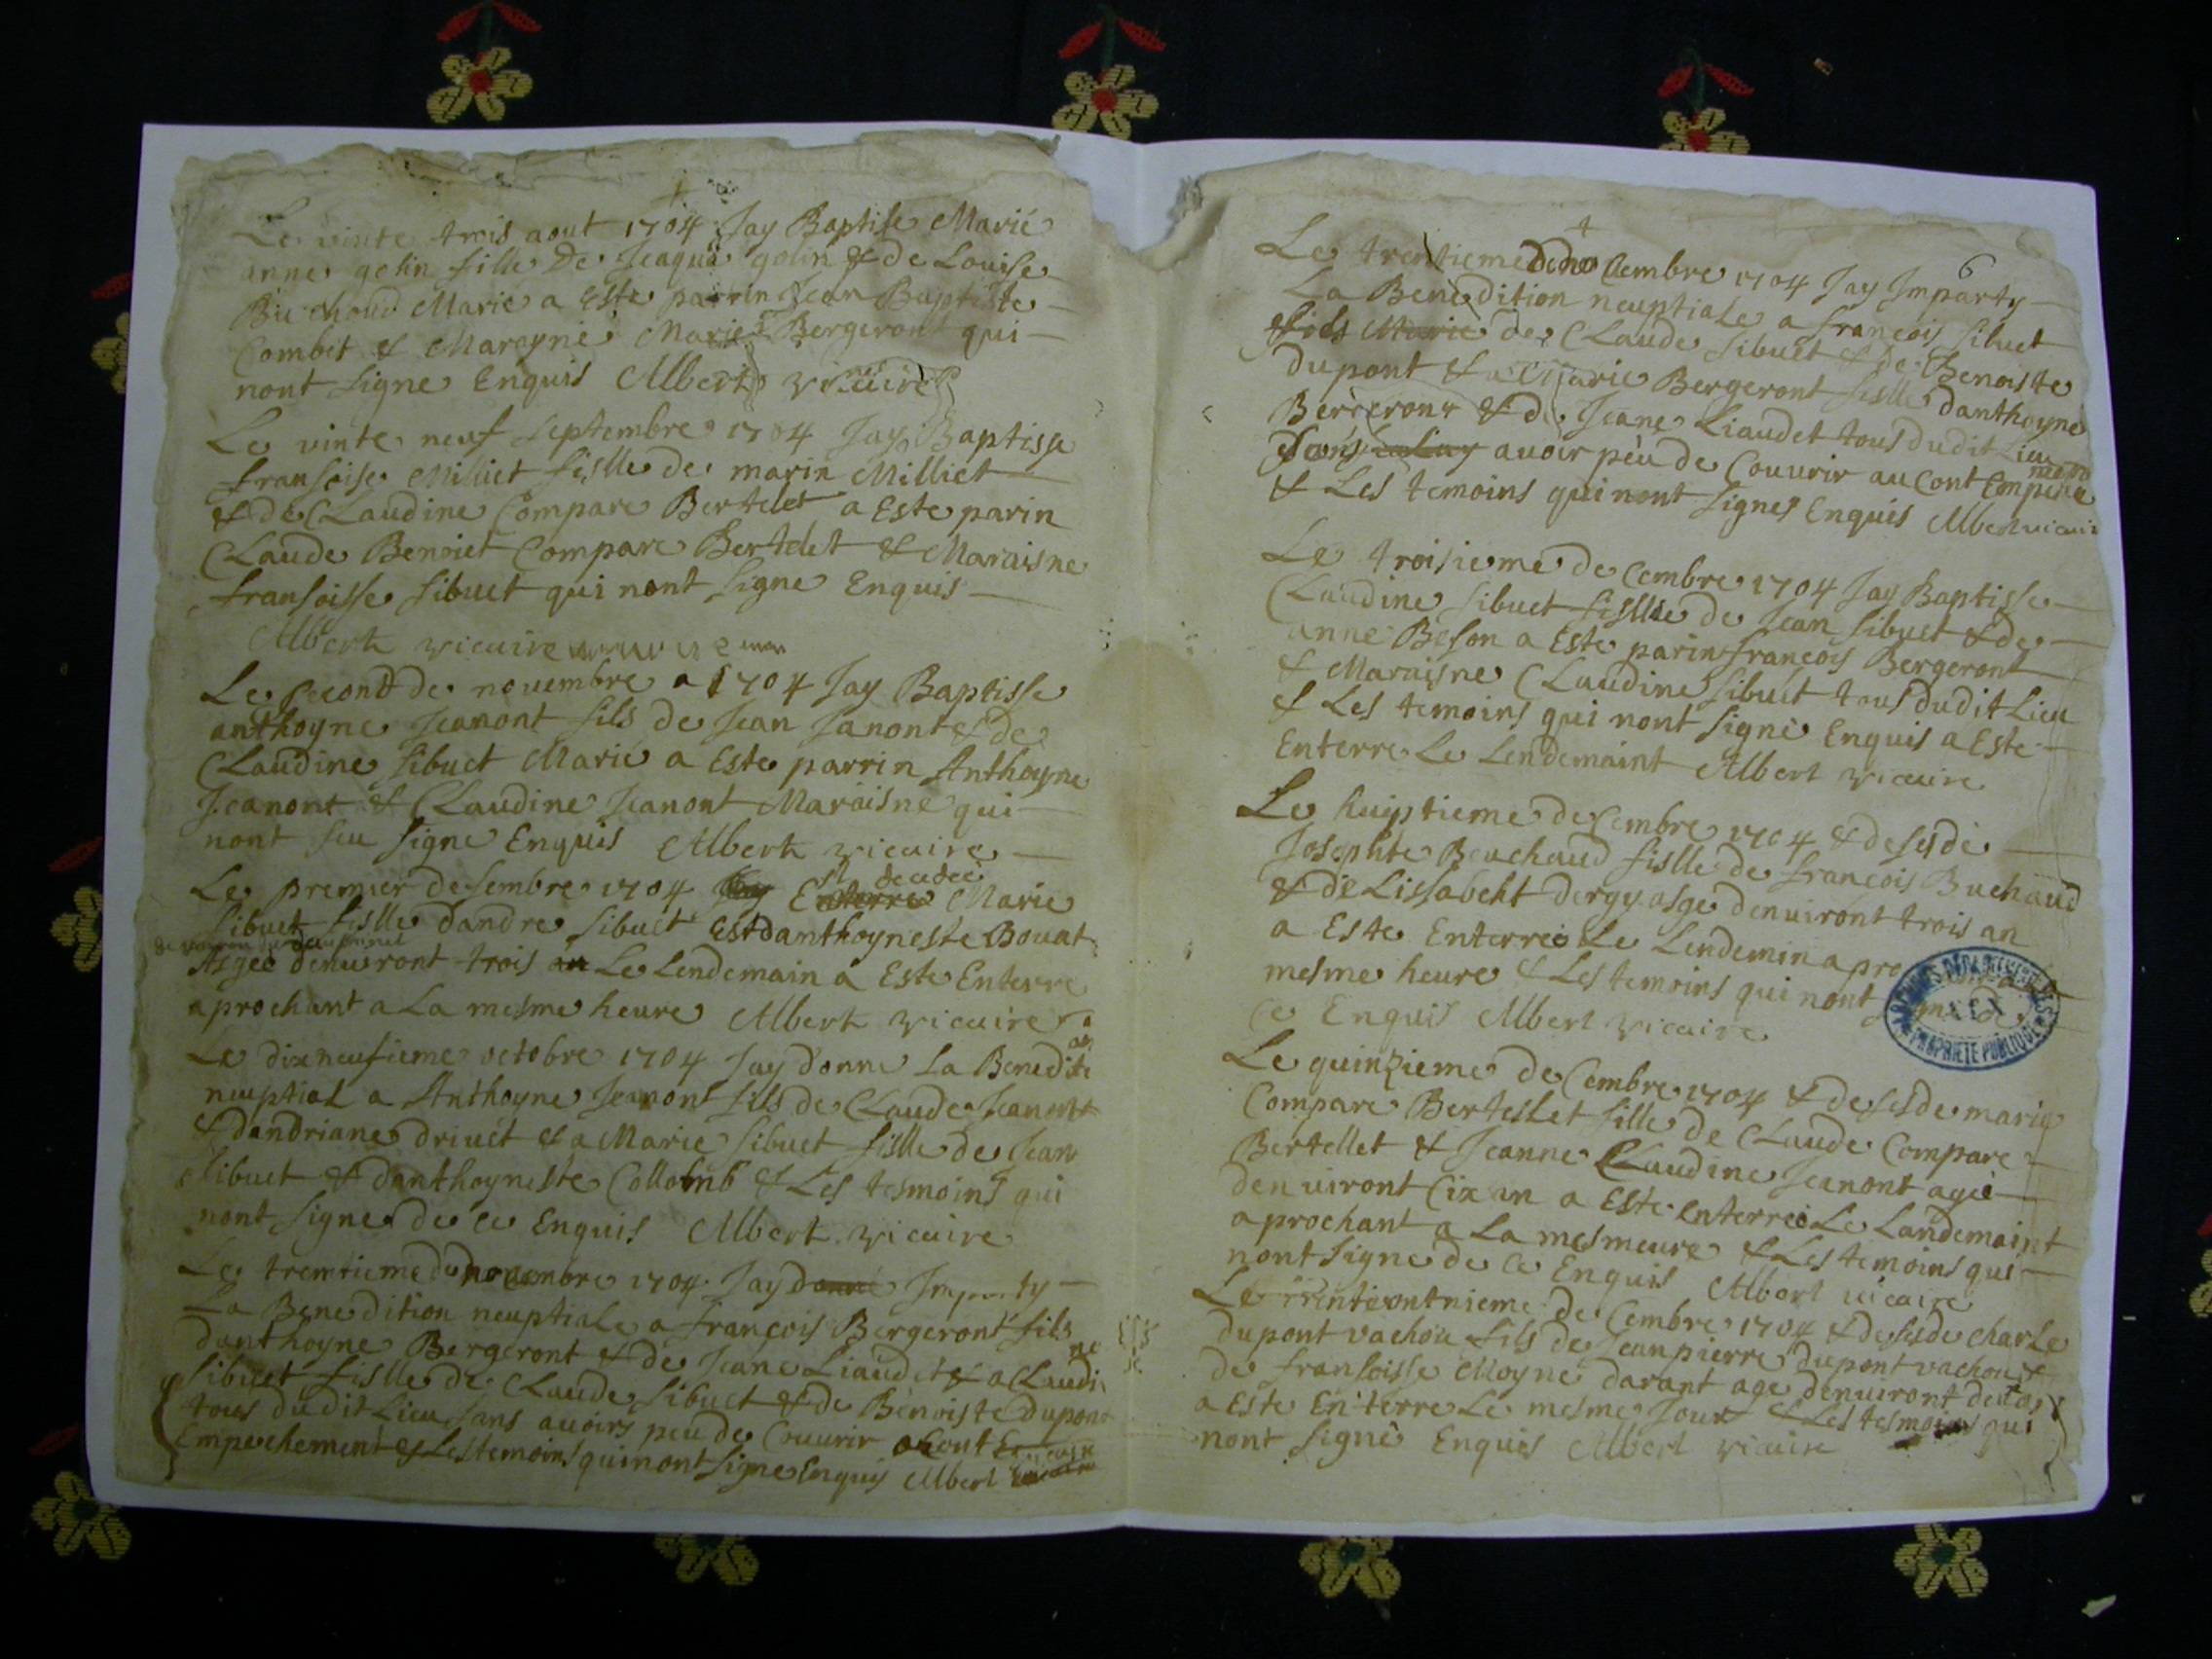 Le vinte trois aout 1704 Jay Baptise Marié
anne golin fille De Jeaqua golin & de Louise
Buchoud Marié a Este parrin Jean Baptiste
Combet & Marayne Marie Bergeront qui
nont signe Enquis Albert vicaire
Le vinte neuf septembre 1704 Jay Baptisse
fransoise Milliet fislle de marin Milliet
& de Claudine Compare Bertelet a Este parin
Claude Benoiet Compare Bertelet & Maraisne
fransoisse sibuet qui nont signe Enquis
Albert vicaire
Le second de novembre a 1704 Jay Baptisse
anthoyne Jeanont fils de Jean Janont & de
Claudine sibuet Marié a Este parrin Anthoyne
Jeanont & Claudine Jeanont Maraisne qui
nont seu signe Enquis Albert vicaire
Le premier desembre 1704 decedee Marie
sibuet fislle dandre sibuet Est danthoyneste Bouat
Asgée denuiront trois an Le Lendemain a Este Enterre
aprochant a La mesme heure Albert vicaire
Le dixneufieme octobre 1704 Jay donne La Benediti
on
neuptial a Anthoyne Jeanont fils de Claude Jeanont
& dandriane driuet & a Marie sibuet fislle de Jean
sibuet & danthoyneste Collomb & Les tesmoins qui
nont signe de ce Enquis Albert vicaire
Le trentieme de novembre 1704 Jay donné Imparty
La Benedition neuptiale a françois Bergeront fils
danthoyne Bergeront & de Jeane Liaudet & a Claudi
ne
sibuet fislle de Claude sibuet & de Benoiste dupont
tous dudit Lieu sans auoirs peu de Couurir
Empechement & Les temoins qui nont signe Enquis Albert vicaire
6
Le trentieme 1704 Jay Imparty
La Benedition neuptiale a françois sibuet
fids Marie de Claude sibuet & de Benoiste
dupont & a Marie Bergeront fislle danthoyne
Bergeront & de Jeane Liaudet tous dudit Lieu
sans auoir pèu de Couurir aucont Empeche
ment
& Les temoins qui nont signes Enquis Albert vicaire
Le troisieme de Cembre 1704 Jay Baptisse
Claudine sibuet fisllie de Jean sibuet & de
anne Beson a Este parin françois Bergeront
& Maraisne Claudine sibuet tous dudit Lieu
& Les temoins qui nont signè Enquis a Este
Enterre Le Lendemaint Albert vicaire
Le huiptieme de Cembre 1704 & desesde
Josephte Bouchaud fislle de françois Buchaud
& de Lissabeht dergy asge denuiront trois an
a Este Enterreé Le Lendemin apro
mesme heure & Les temoins qui nont
ce Enquis Albert vicaire
ARCHIVES DÉPARTEMENTALES
PROPRIÉTÉ PUBLIQUE
Le quinzieme de Cembre 1704 & desesde marie
Compare Berteslet fille de Claude Compare
Bertellet & Jeanne Claudine Jeanont agée
denuiront Cix an a Este Enterreé Le Landemaint
aprochant a La mesmeure & Les temoins qui
nont signe de ce Enquis Albert vicaire
Le de Cembre 1704 & desesde Charle
dupont vachou fils de Jeanpierre dupont vachou &
de fransoisse Moyne darant age denuiront
a Este Enterre Le mesme Jour & Les tesmoins qui
nont signè Enquis Albert vicaire